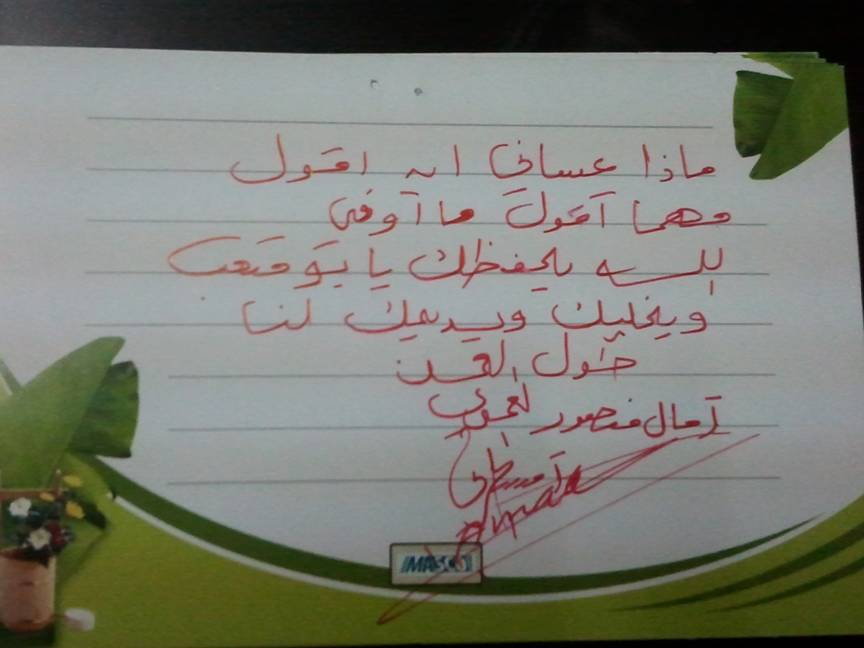 ماذا عساني ان اقول
مهما أقول ما أوفي
الله يحفظك يا بو متعب
ويخليك ويديمك لنا
طول العمر
آمال منصور
Amal
IMASCO